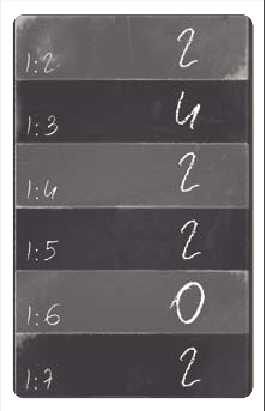 1:2 2
1:3 4
1:4 2
1:5 2
1:6 0
1:7 2